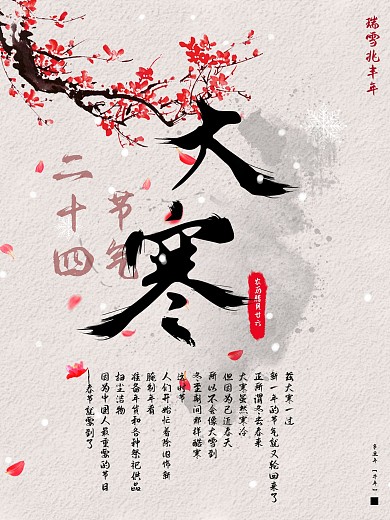 瑞雪兆丰年
大寒
二十四
节气
农历腊月廿六
大寒一过
新一年的节气就又轮回来了
正所谓冬去春来
大寒虽然寒冷
但因为已近春天
所以不会像大雪到
冬至期间那样酷寒
这时节
人们开始忙着除旧饰新
腌制年肴
准备年货和各种祭祀供品
扫尘洁物
因为中国人最重要的节日
—春节就要到了
辛丑年【牛年】